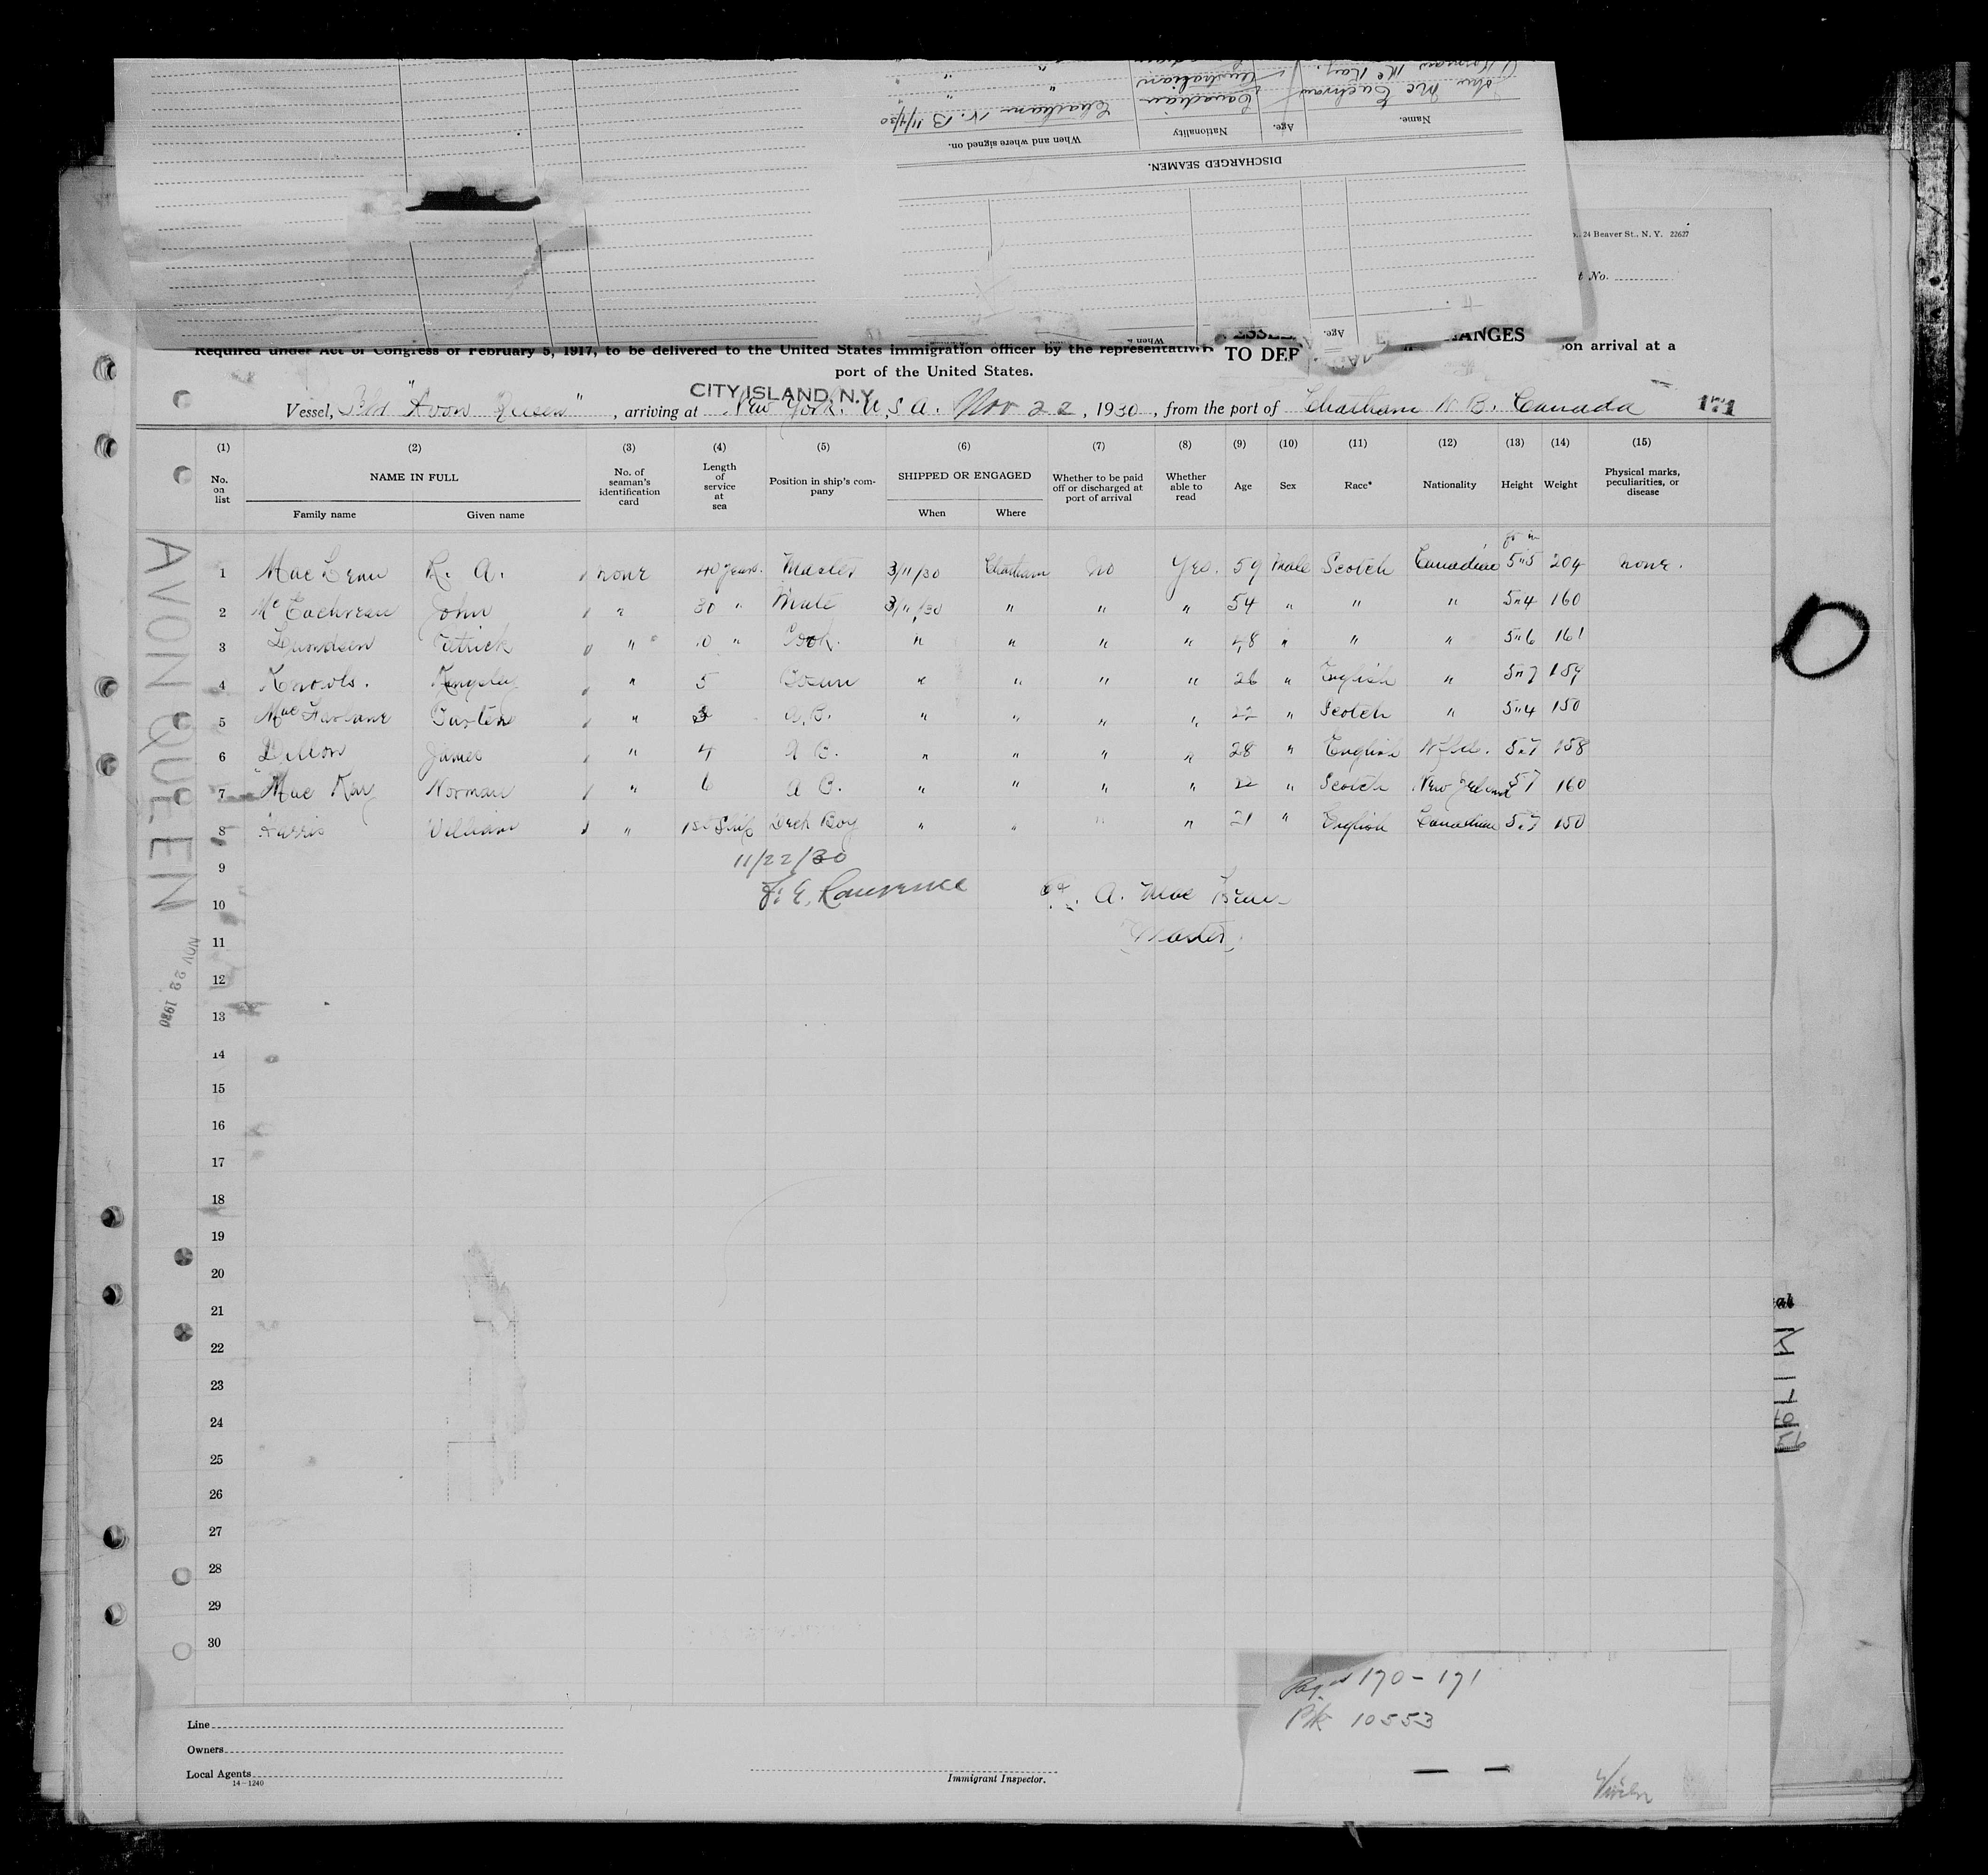 Name.
Age.
Nationality
When and where signed on.
Mc Eachran
Canadian
Chatham N. B 11/4/30
Norman Mc Kay.
Australian
"
"
DISCHARGED SEAMEN.
24 Beaver St., N. Y. 22627
No.
Age.
TO DEP
ANGES
Required under Act of Congress of February 5, 1917, to be delivered to the United States immigration officer by the representati
on arrival at a
port of the United States.
CITY ISLAND, N.Y.
Vessel, "Avon Queen", arriving at New York. U, S A. Nov 22, 1930, from the port of Chatham N B. Canada 171
(1) (2) (3) (4) (5) (6) (7) (8) (9) (10) (11) (12) (13) (14) (15)
No. on list
NAME IN FULL
Family name
Given name
No. of seaman's identification card
Length of service at sea
Position in ship's company
SHIPPED OR ENGAGED
When
Where
Whether to be paid off or discharged at port of arrival
Whether able to read
Age
Sex
Race*
Nationality
Height
Weight
Physical marks, peculiarities, or disease
ft in
1 Mac Lean R. A. none 40 years. Master 3/11/30 Chatham No Yes. 59 Male Scotch Canadian 5"5 204 none.
2 Mc Eachrean John " 30 " Mate 3/11/30 " " " 54 " " " 5"4 160
3 Patrick " 10 " Cook. " " " " 48 " " " 5"6 161
4 Knowls. Kingsley " 5 Bosun " " " " 26 " English " 5"7 159
5 Mac Farlane " 3 A.B. " " " " 22 " Scotch " 5"4 150
6 Dillon James " 4 A B. " " " " 28 " English Nfld. 5"7 158
7 Mac Kay Norman " 6 A B. " " " " 22 " Scotch New Zeland 5 7 160
8 William " 1st Ship Deck Boy " " " " 21 " English Canadian 5"7 150
9
11/22/30
10
F. E. Lawrence
A. Mac Lean
11
Master
12
13
14
15
16
17
18
19
20
21
22
23
24
25
26
27
28
29
30
AVON QUEEN
NOV 22 1930
Line
Owners
Local Agents
14—1240
Immigrant Inspector.
Pages 170-171
Bk 10553